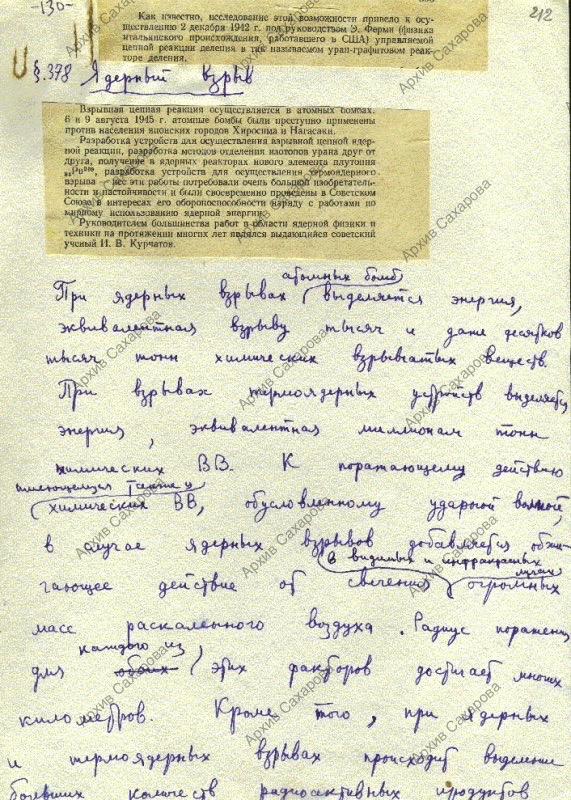 -130-
212
Как известно, исследование этой возможности привело к осу-
ществлению 2 декабря 1942 г. под руководством Э. Ферми (физика
итальянского происхождения, работавшего в США) управляемой
цепной реакции деления в так называемом уран-графитовом реак-
торе деления.
§.378 Ядерный взрыв
Взрывная цепная реакция осуществляется в атомных бомбах.
6 и 9 августа 1945 г. атомные бомбы были преступно применены
против населения японских городов Хиросима и Нагасаки.
Разработка устройств для осуществления взрывной цепной ядер-
ной реакции, разработка методов отделения изотопов урана друг от
друга, получение в ядерных реакторах нового элемента плутония
₉₄Pu²³⁹, разработка устройств для осуществления термоядерного
взрыва — все эти работы потребовали очень большой изобретатель-
ности и настойчивости и были своевременно проведены в Советском
Союзе в интересах его обороноспособности наряду с работами по
мирному использованию ядерной энергии.
Руководителем большинства работ в области ядерной физики и
техники на протяжении многих лет являлся выдающийся советский
ученый И. В. Курчатов.
атомных бомб
При ядерных взрывах выделяется энергия,
эквивалентная взрыву тысяч и даже десятков
тысяч тонн химических взрывчатых веществ.
При взрывах термоядерных устройств выделяется
энергия, эквивалентная миллионам тонн
химических ВВ. К поражающему действию
имеющемуся также у
химических ВВ, обусловленному ударной волной,
в случае ядерных взрывов добавляется обжи-
в видимых и инфракрасных лучах
гающее действие от свечения огромных
масс раскаленного воздуха. Радиус поражения
каждого из
для обоих этих факторов достигает многих
километров. Кроме того, при ядерных
и термоядерных взрывах происходит выделение
больших количеств радиоактивных продуктов
Архив Сахарова